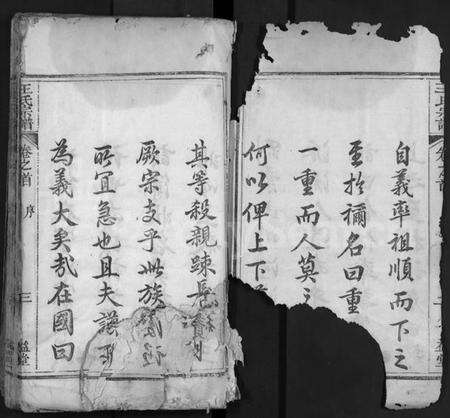 王氏宗譜
卷之首
自義率祖順而下之
至於禰名曰重
一重而人莫之
何以俾上下
王氏宗譜
卷之首
序
三
其等殺親疎長
厥宗支乎此族譜
所宜急也且夫譜
為義大矣哉在國曰